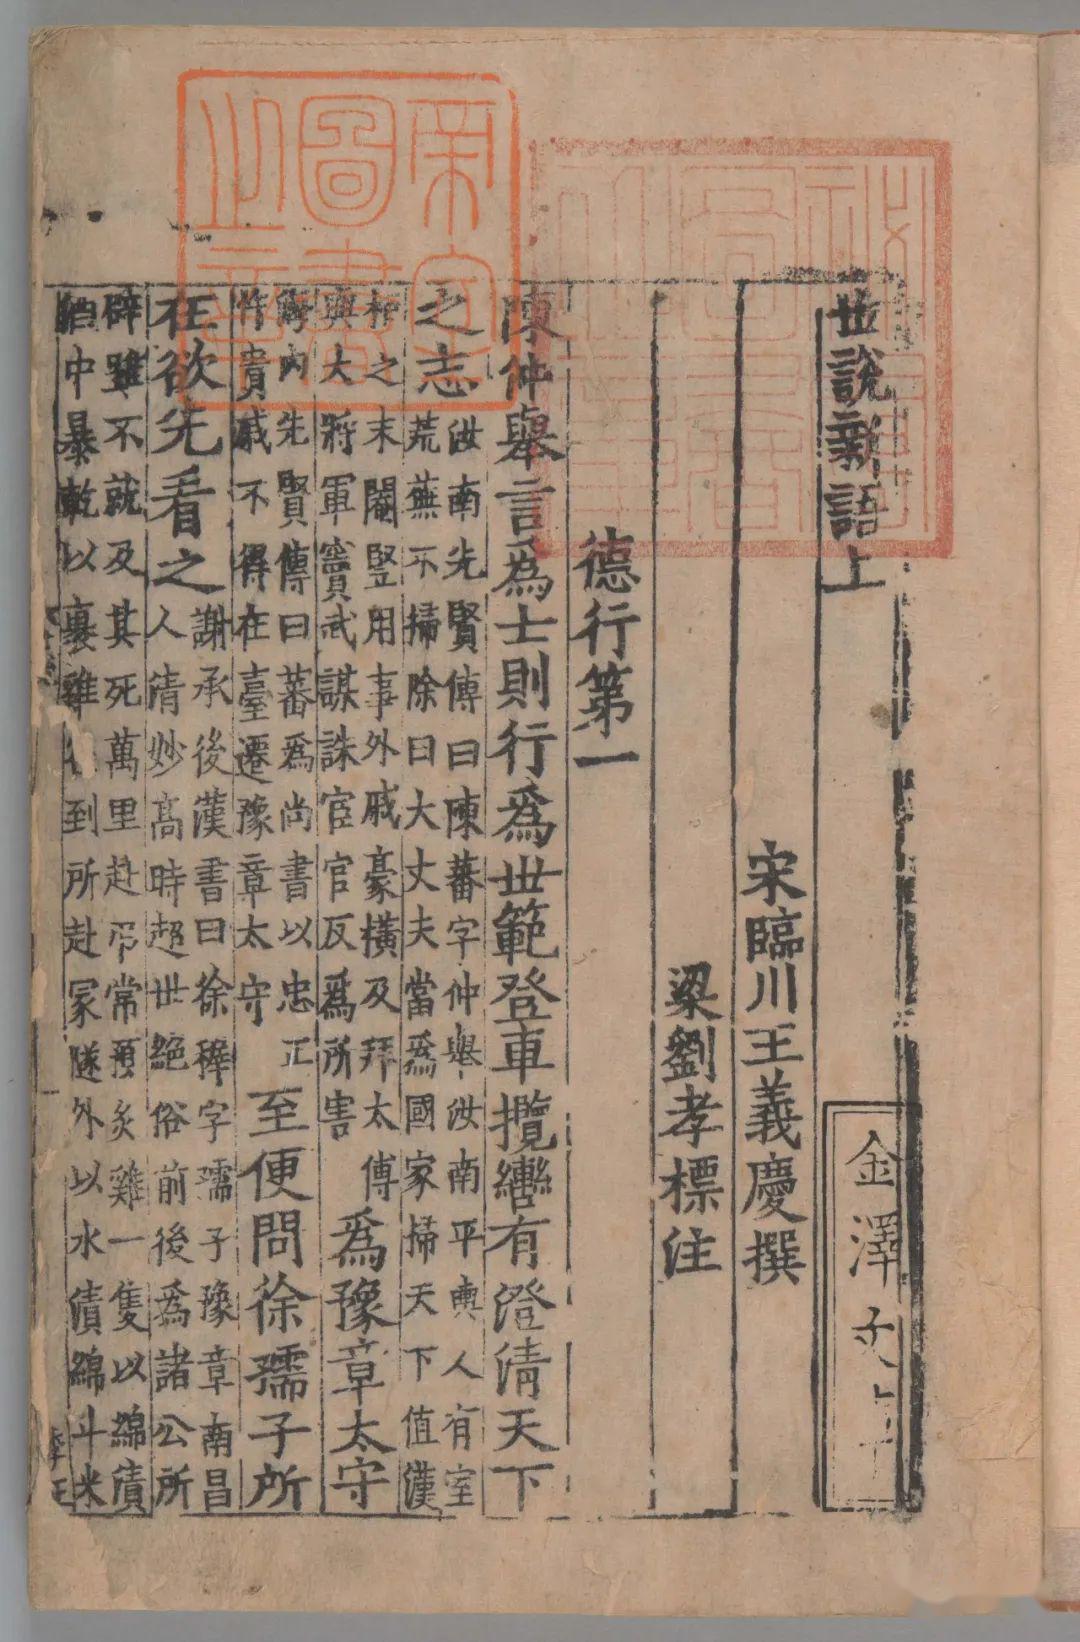 世說新語上
金澤文
宋臨川王義慶撰
梁劉孝標注
德行第一
陳仲舉言爲士則行爲世範登車攬轡有澄清天下
之志
汝南先賢傳曰陳蕃字仲舉汝南平輿人有室
荒蕪不掃除曰大丈夫當爲國家掃天下值漢
桓之末閹豎用事外戚豪橫及拜太傅
與大將軍竇武謀誅宦官反爲所害
爲豫章太守
海內先賢傳曰蕃爲尚書以忠正
忤貴戚不得在臺遷豫章太守
至便問徐孺子所
在欲先看之
謝承後漢書曰徐穉字孺子豫章南昌
人清妙高時超世絕俗前後爲諸公所
辟雖不就及其死萬里赴弔常預炙雞一隻以綿漬
酒中暴乾以裹雞徑到所赴冢隧外以水漬綿斗米
帝室圖書之章
秘閣圖書之章